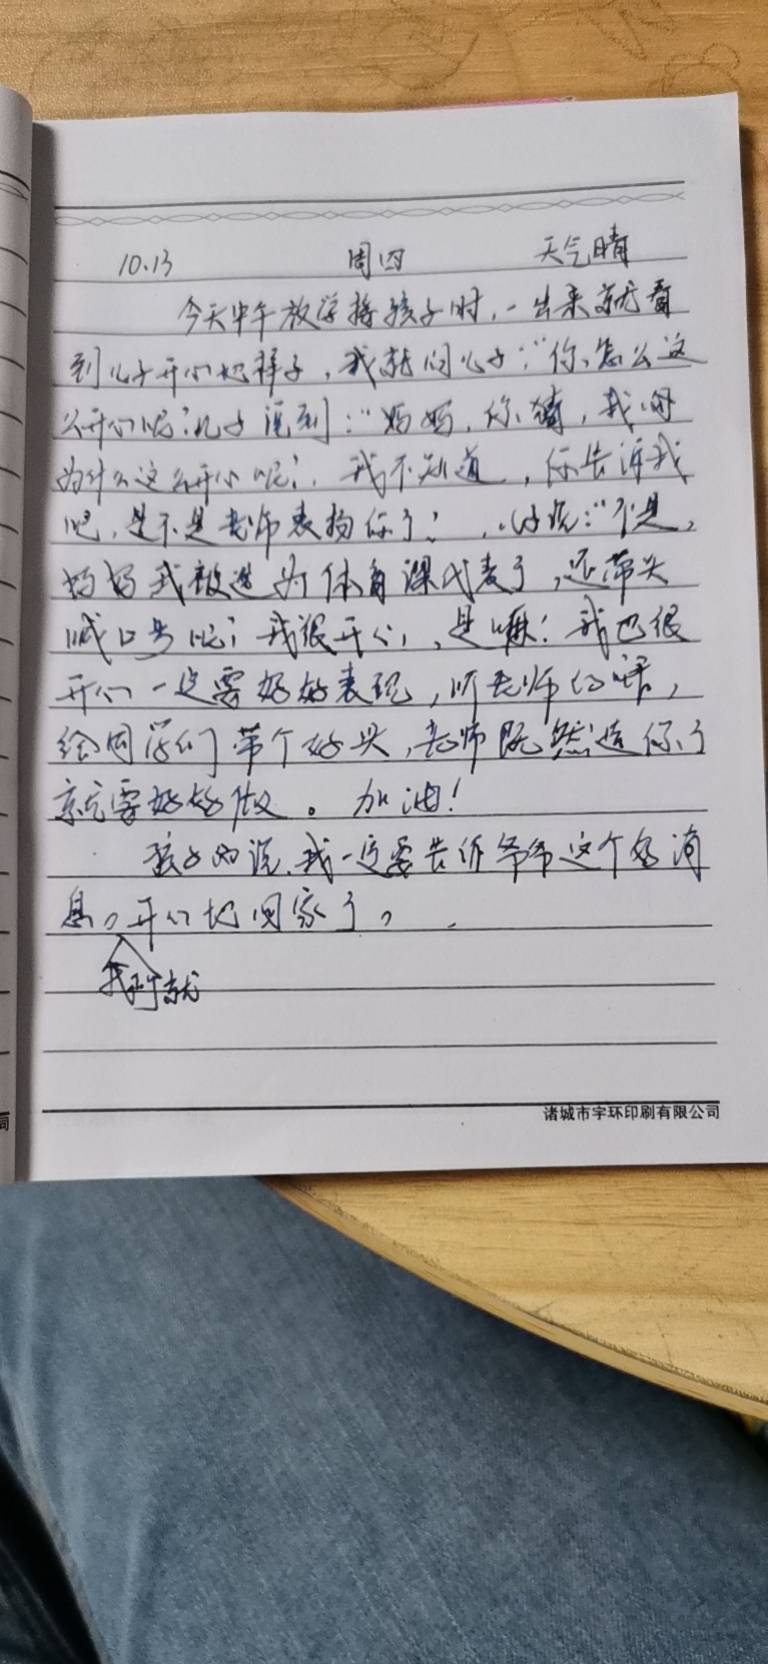 10.13 周四 天气晴
今天中午放学接孩子时,一出来就看
到儿子开心的样子,我就问儿子:"你怎么这
么开心呢?儿子说到:"妈妈,你猜,我
为什么这么开心呢?,我不知道,你告诉我
吧,是不是老师表扬你了?,儿子说:"不是,
妈妈我被选为体育课代表了,还带头
喊口号呢!我很开心,,是嘛!我也很
开心一定要好好表现,听老师的话,
给同学们带个好头,老师既然选你了
就要好好做。加油!
孩子说,我一定要告诉爷爷这个好消
息,开心地回家了。
我们就
诸城市宇环印刷有限公司
司